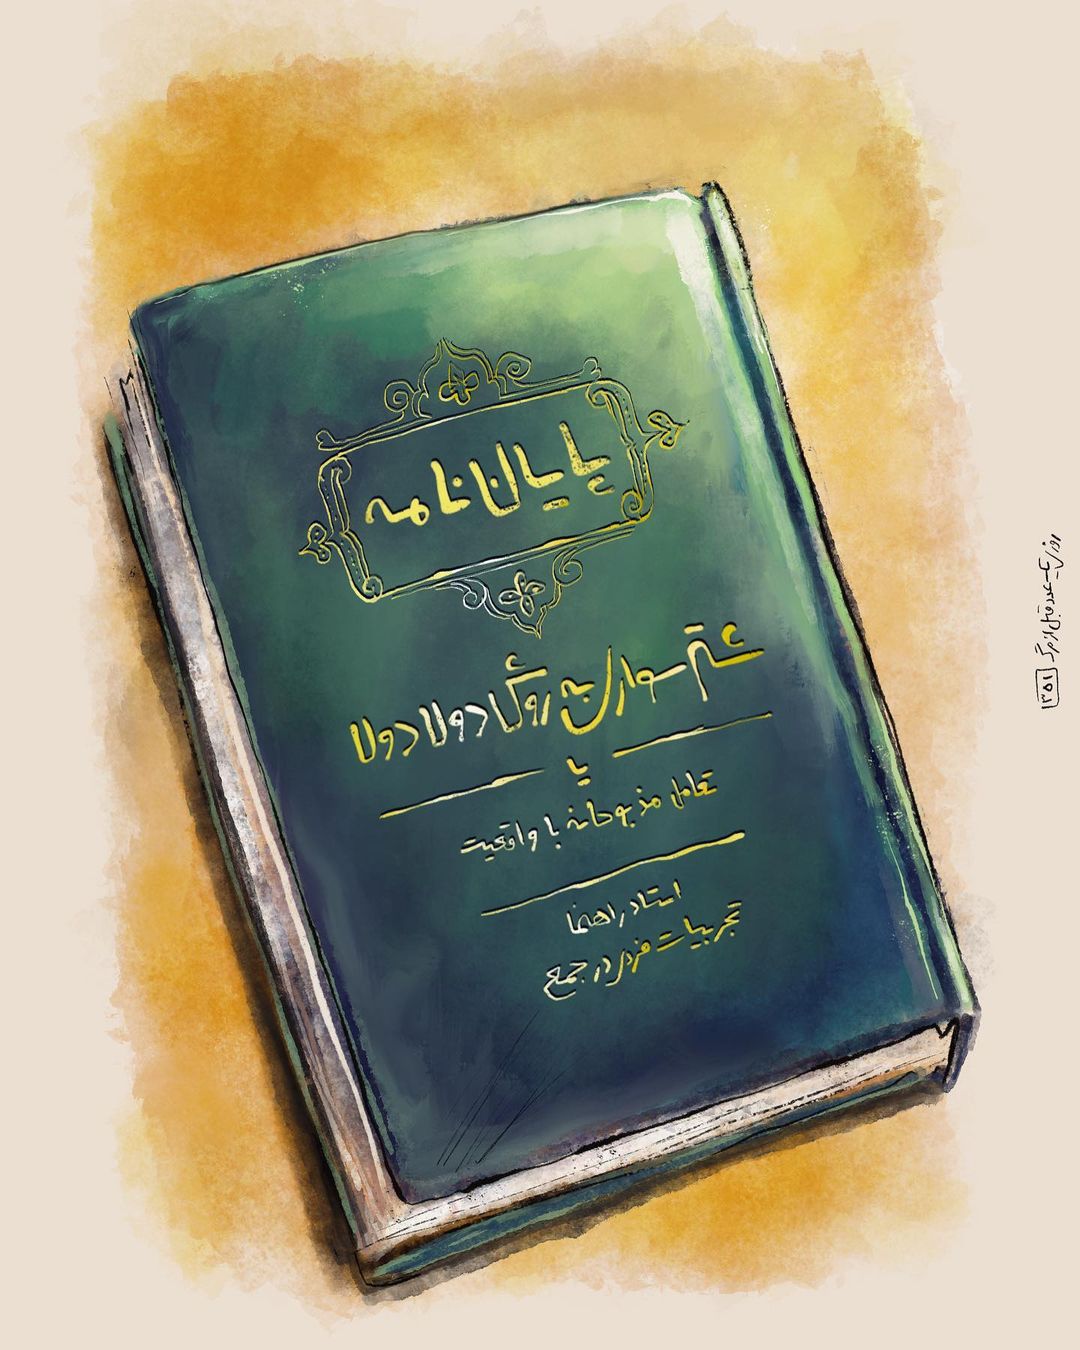 پایان‌نامه
شترسواری به روش دولا دولا
یا
تعامل مذبوحانه با واقعیت
استاد راهنما
تجربیات فردی در جمع
۳۵۱